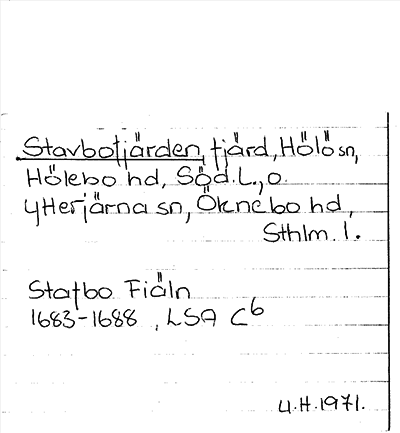 Stavbofjärden, fjärd, Hölö sn,
Hölebo hd, Söd. L., o.
Ytterjärna sn, Öknebo hd,
Sthlm. l.
Stafbo Fiäln
1683-1688, LSA C6
U.H. 1971.